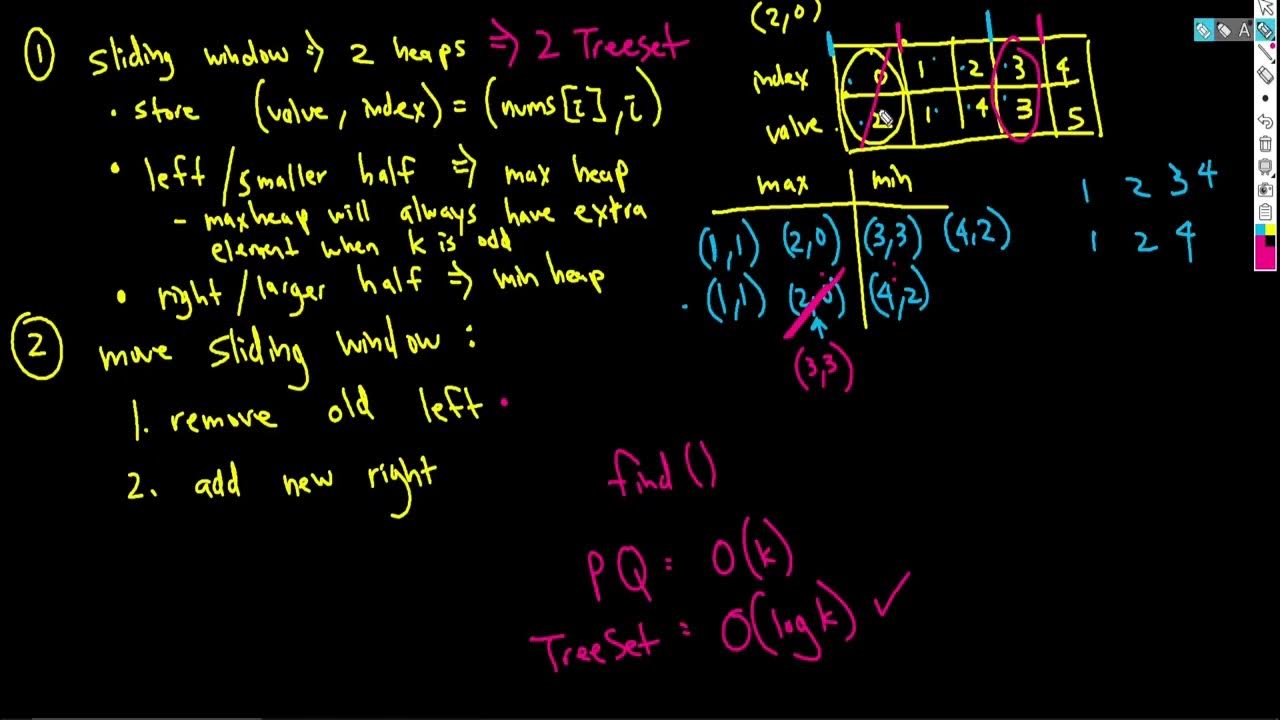 ① sliding window => 2 heaps => 2 Treeset
• store (value, index) = (nums[i], i)
• left/smaller half => max heap
- maxheap will always have extra
element when k is odd
• right/larger half => min heap
② move sliding window:
1. remove old left
2. add new right
(2,0)
index 0 1 2 3 4
value 2 1 4 3 5
max min
(1,1) (2,0) (3,3) (4,2)
(1,1) (2,0) (4,2)
(3,3)
1 2 3 4
1 2 4
find()
PQ = O(k)
TreeSet = O(log k) ✓
A